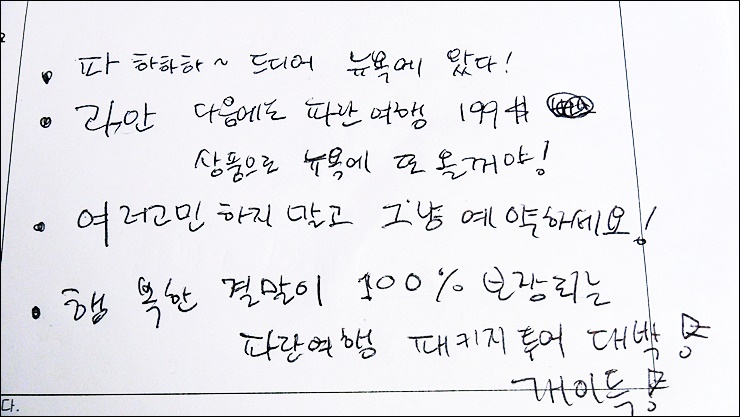 • 파 하하하~ 드디어 뉴욕에 왔다!
• 란, 안 다음에도 파란여행 199$
상품으로 뉴욕에 또 올꺼야!
• 여러고민 하지 말고 그냥 예약하세요!
• 행 복한 결말이 100% 보장되는
파란여행 패키지투어 대박
개이득
다.